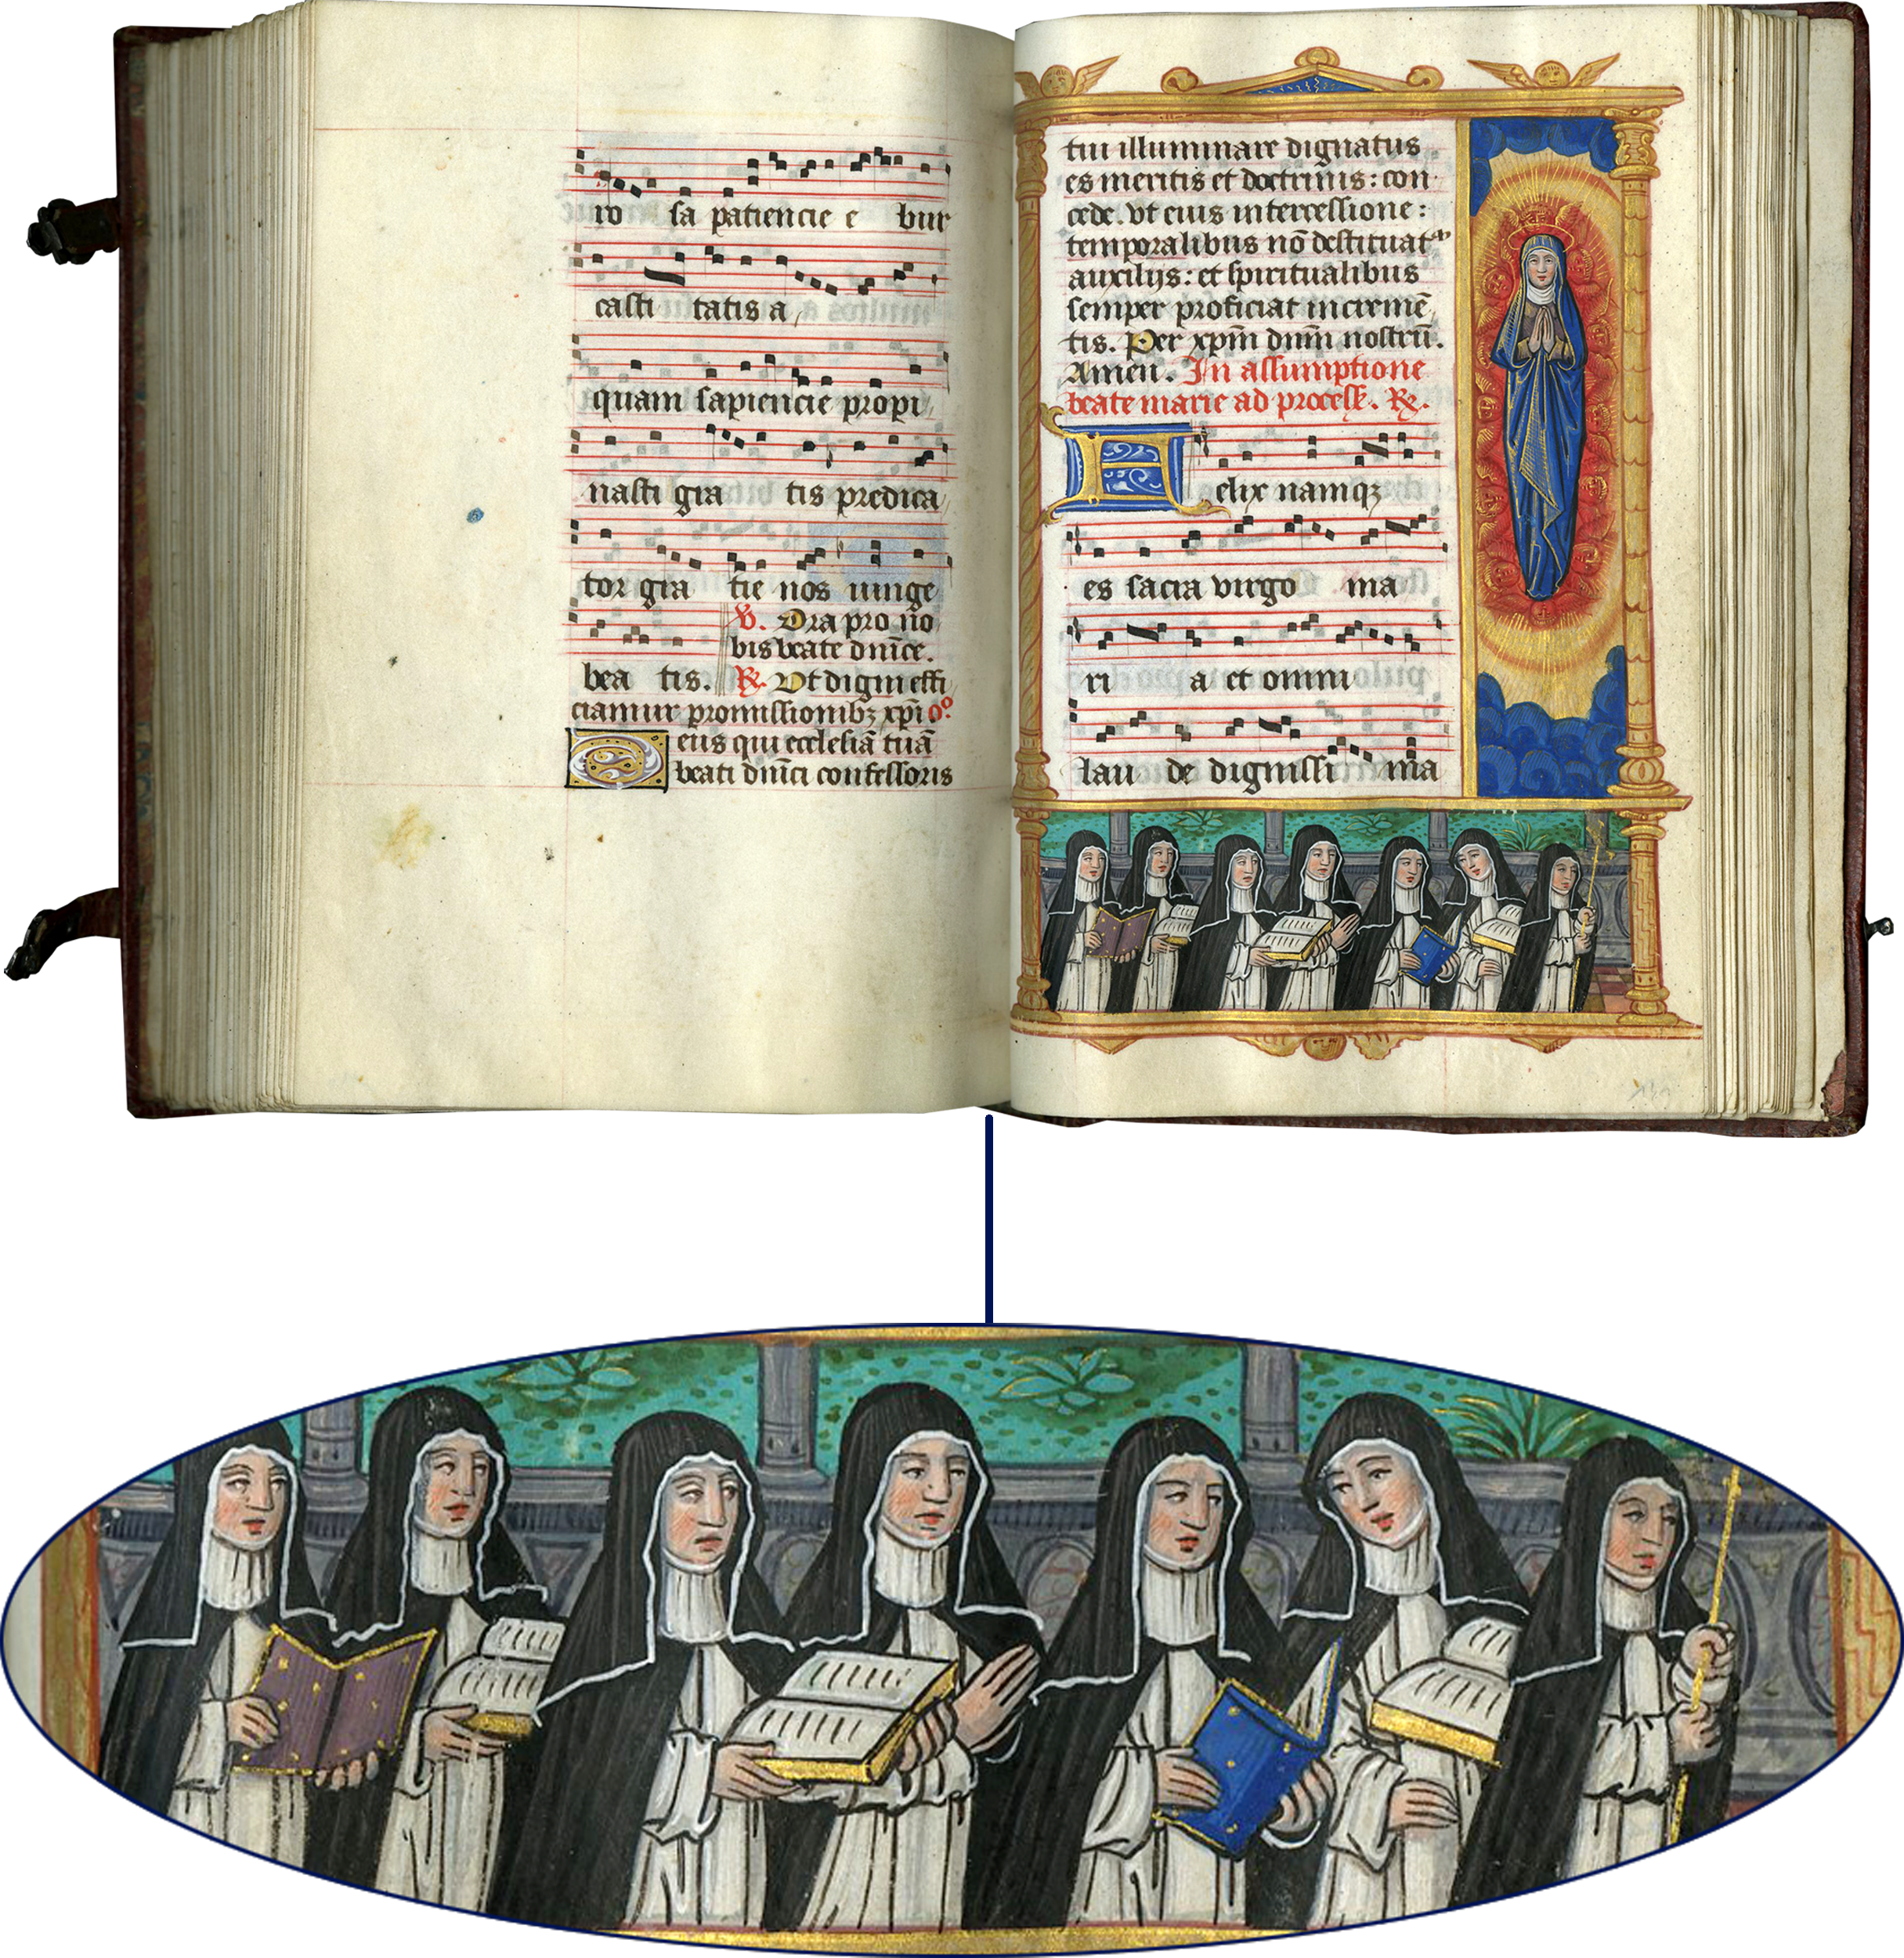 ro sa patiencie e bur
casti tatis a
quam sapiencie propi
nasti gra tis predica
tor gra tie nos iunge
V. Ora pro no
bis beate dnīce.
bea tis. R. Vt digni effi
ciamur promissionibꝫ xpī oᵒ
Deus qui ecclesiā tuā
beati dnīci confessoris
tui illuminare dignatus
es meritis et doctrinis: con
cede. vt eius intercessione:
temporalibus nō destituat᷑
auxilijs: et spiritualibus
semper proficiat incremē
tis. Per xpm̄ dnm̄ nostrū.
Amen. In assumptione
beate marie ad process. R.
Felix namqꝫ
es sacra virgo ma
ri a et omni
lau de dignissi ma